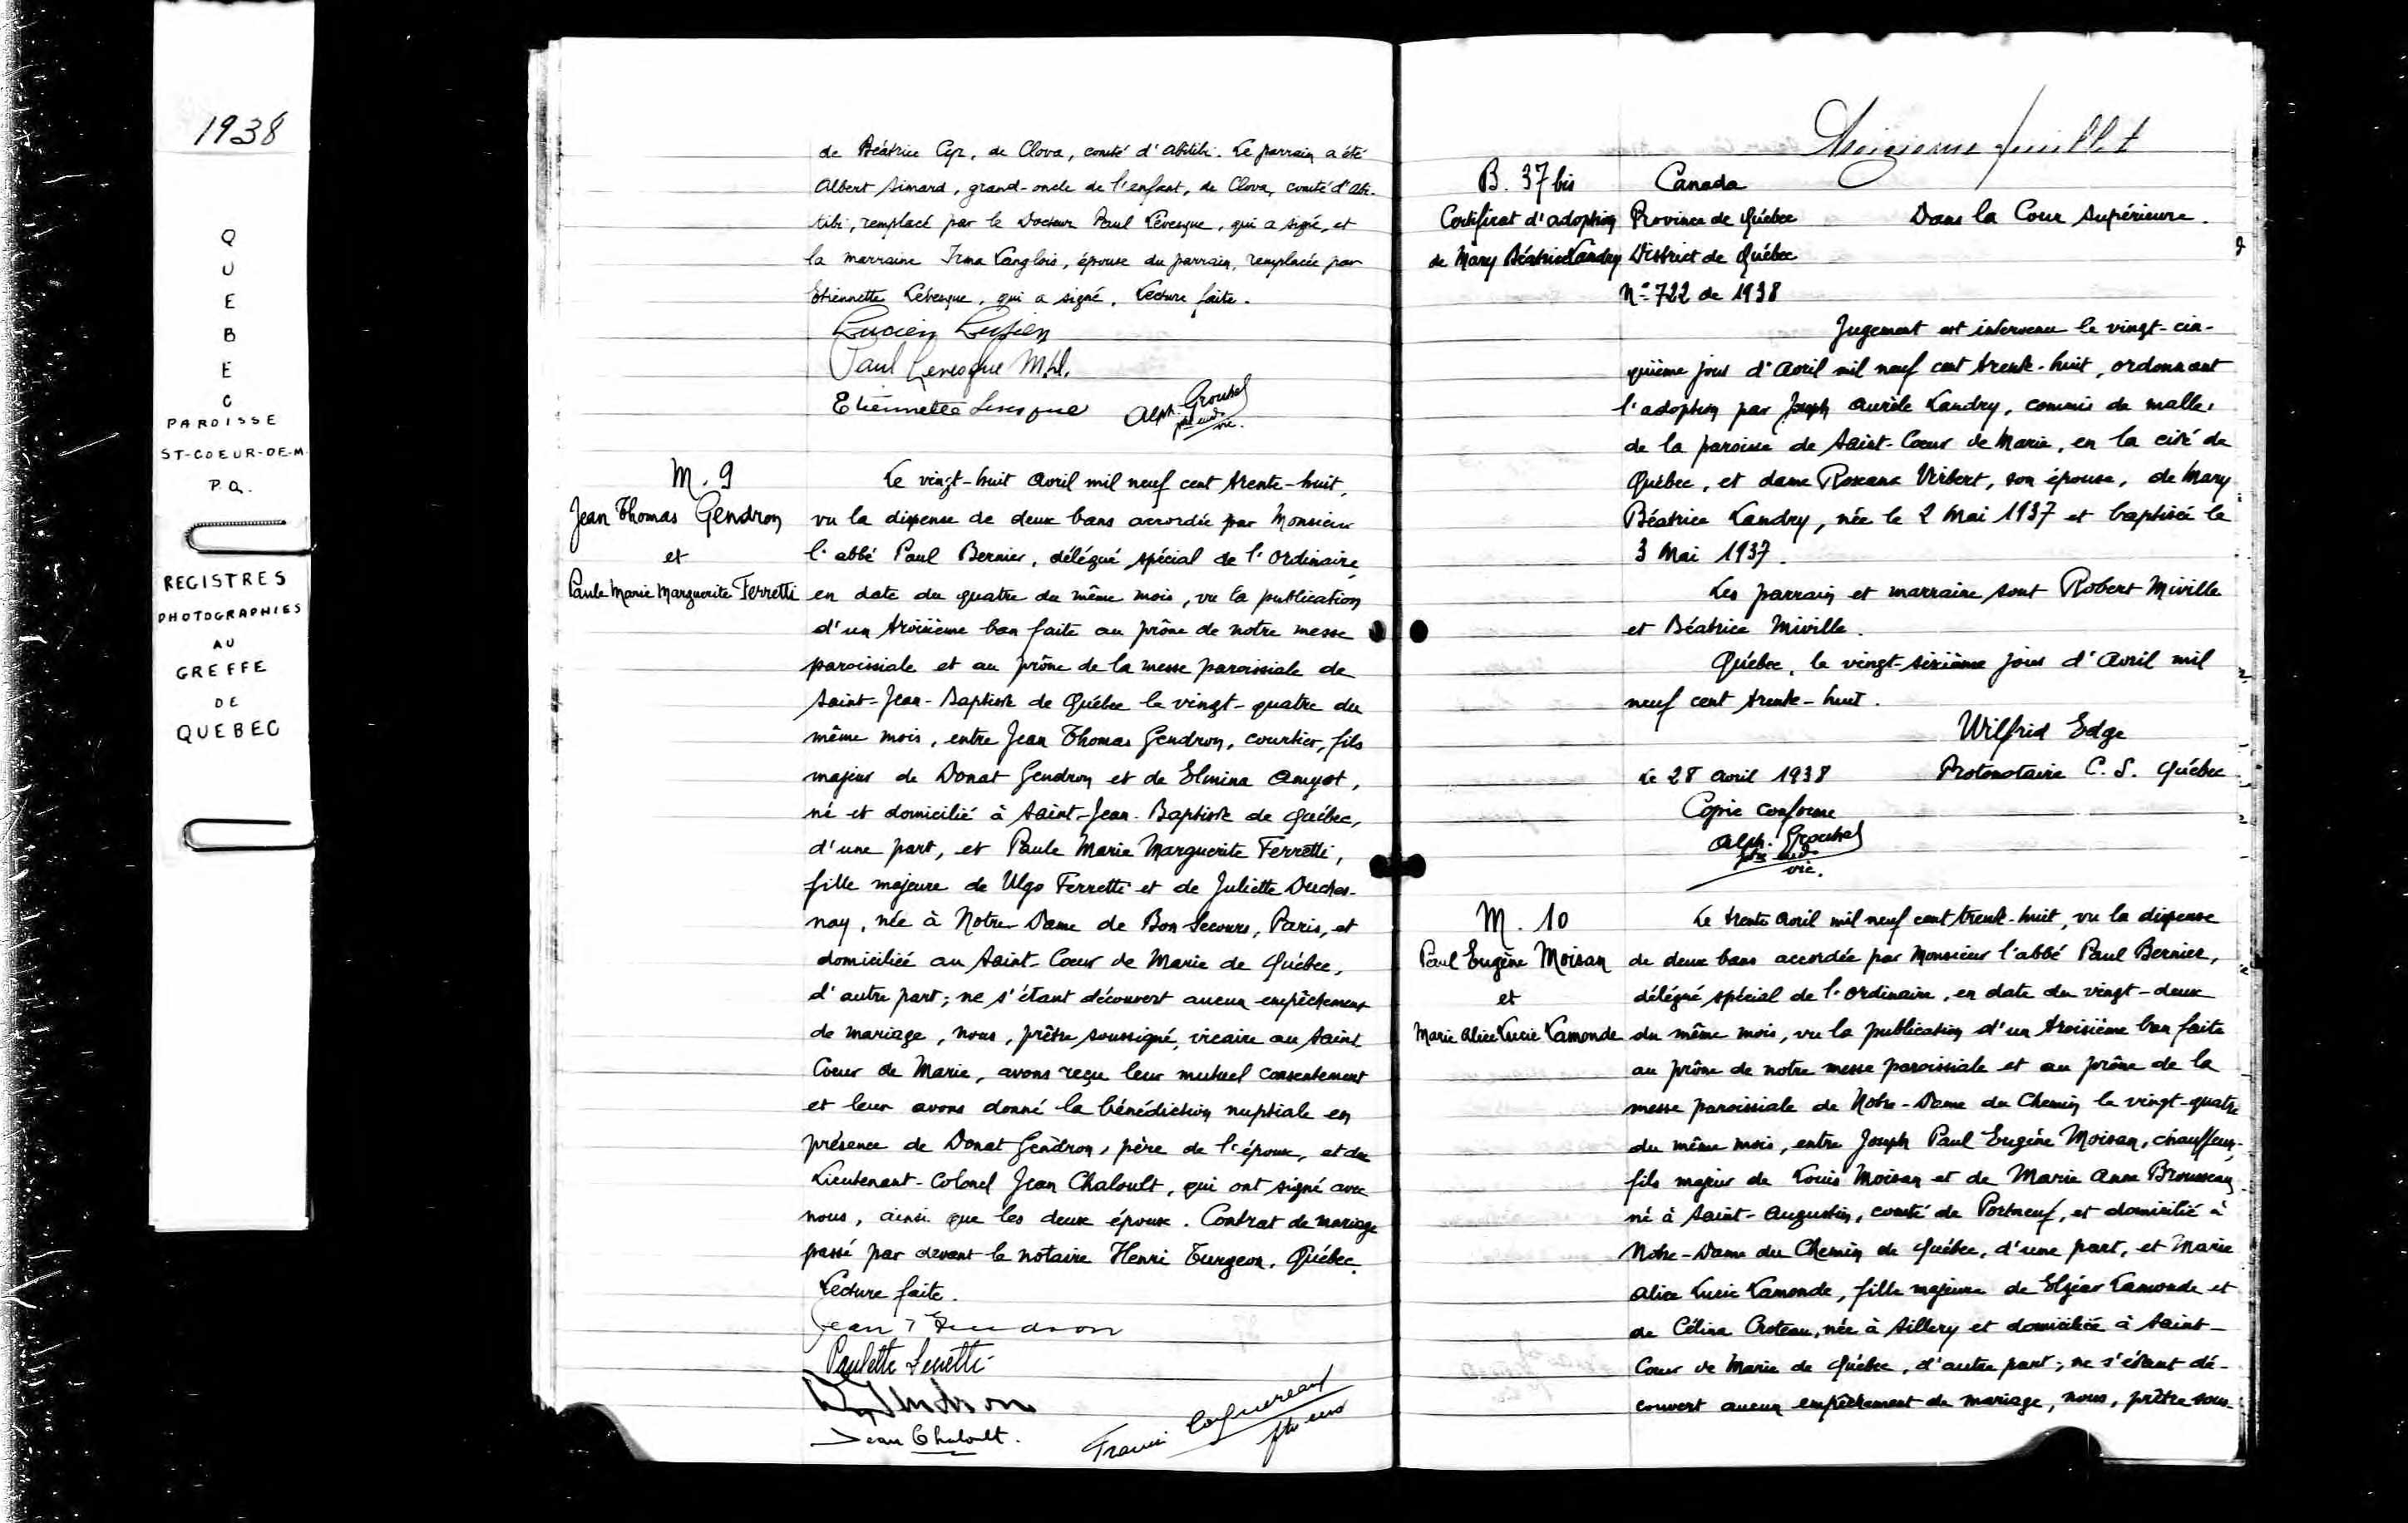 1938
QUEBEC
PAROISSE
ST-COEUR-DE-M.
P.Q.
REGISTRES
PHOTOGRAPHIES
AU
GREFFE
DE
QUEBEC
de Béatrice Cyr, de Clova, comté d'Abitibi. Le parrain a été
Albert Simard, grand-oncle de l'enfant, de Clova, comté d'Abi-
tibi, remplacé par le Docteur Paul Lévesque, qui a signé, et
la marraine Irma Langlois, épouse du parrain, remplacée par
Etiennette Lévesque, qui a signé. Lecture faite.
Lucien
Paul Levesque M.D.
Etiennette Levesque
Alph.
ptre
vic.
M. 9
Jean Thomas Gendron
et
Paule Marie Marguerite Ferretti
Le vingt-huit avril mil neuf cent trente-huit,
vu la dispense de deux bans accordée par Monsieur
l'abbé Paul Bernier, délégué spécial de l'Ordinaire,
en date du quatre du même mois, vu la publication
d'un troisième ban faite au prône de notre messe
paroissiale et au prône de la messe paroissiale de
Saint-Jean-Baptiste de Québec le vingt-quatre du
même mois, entre Jean Thomas Gendron, courtier, fils
majeur de Donat Gendron et de Elmina Amyot,
né et domicilié à Saint-Jean-Baptiste de Québec,
d'une part, et Paule Marie Marguerite Ferretti,
fille majeure de Ulgo Ferretti et de Juliette Duches-
nay, née à Notre-Dame de Bon Secours, Paris, et
domiciliée au Saint-Coeur de Marie de Québec,
d'autre part; ne s'étant découvert aucun empêchement
de mariage, nous, prêtre soussigné, vicaire au Saint
Coeur de Marie, avons reçu leur mutuel consentement
et leur avons donné la bénédiction nuptiale en
présence de Donat Gendron, père de l'époux, et du
Lieutenant-Colonel Jean Chaloult, qui ont signé avec
nous, ainsi que les deux époux. Contrat de mariage
passé par devant le notaire Henri Turgeon, Québec.
Lecture faite.
Jean T Gendron
Paulette Ferretti
D. Gendron
Jean Chaloult.
ptre
feuillet
B. 37 bis
Certificat d'adoption
de Mary Béatrice Landry
Canada
Province de Québec
Dans la Cour Supérieure.
District de Québec
No 722 de 1938
Jugement est intervenu le vingt-cin-
quième jour d'Avril mil neuf cent trente-huit, ordonnant
l'adoption par Joseph Aurèle Landry, commis de malle,
de la paroisse de Saint-Coeur de Marie, en la cité de
Québec, et dame Roxana Virbert, son épouse, de Mary
Béatrice Landry, née le 2 Mai 1937 et baptisée le
3 Mai 1937.
Les parrain et marraine sont Robert Miville
et Béatrice Miville.
Québec, le vingt-sixième jour d'Avril mil
neuf cent trente-huit.
Wilfrid Edge
Le 28 avril 1938
Protonotaire C. S. Québec
Copie conforme
Alph.
ptre
vic.
M. 10
Paul Eugène Moisan
et
Marie Alice Lucie Lamonde
Le trente avril mil neuf cent trente-huit, vu la dispense
de deux bans accordée par Monsieur l'abbé Paul Bernier,
délégué spécial de l'Ordinaire, en date du vingt-deux
du même mois, vu la publication d'un troisième ban faite
au prône de notre messe paroissiale et au prône de la
messe paroissiale de Notre-Dame du Chemin le vingt-quatre
du même mois, entre Joseph Paul Eugène Moisan, chauffeur,
fils majeur de Louis Moisan et de Marie Anne Brousseau,
né à Saint-Augustin, comté de Portneuf, et domicilié à
Notre-Dame du Chemin de Québec, d'une part, et Marie
Alice Lucie Lamonde, fille majeure de Elzéar Lamonde et
de Célina Croteau, née à Sillery et domiciliée à Saint-
Coeur de Marie de Québec, d'autre part; ne s'étant dé-
couvert aucun empêchement de mariage, nous, prêtre sous-